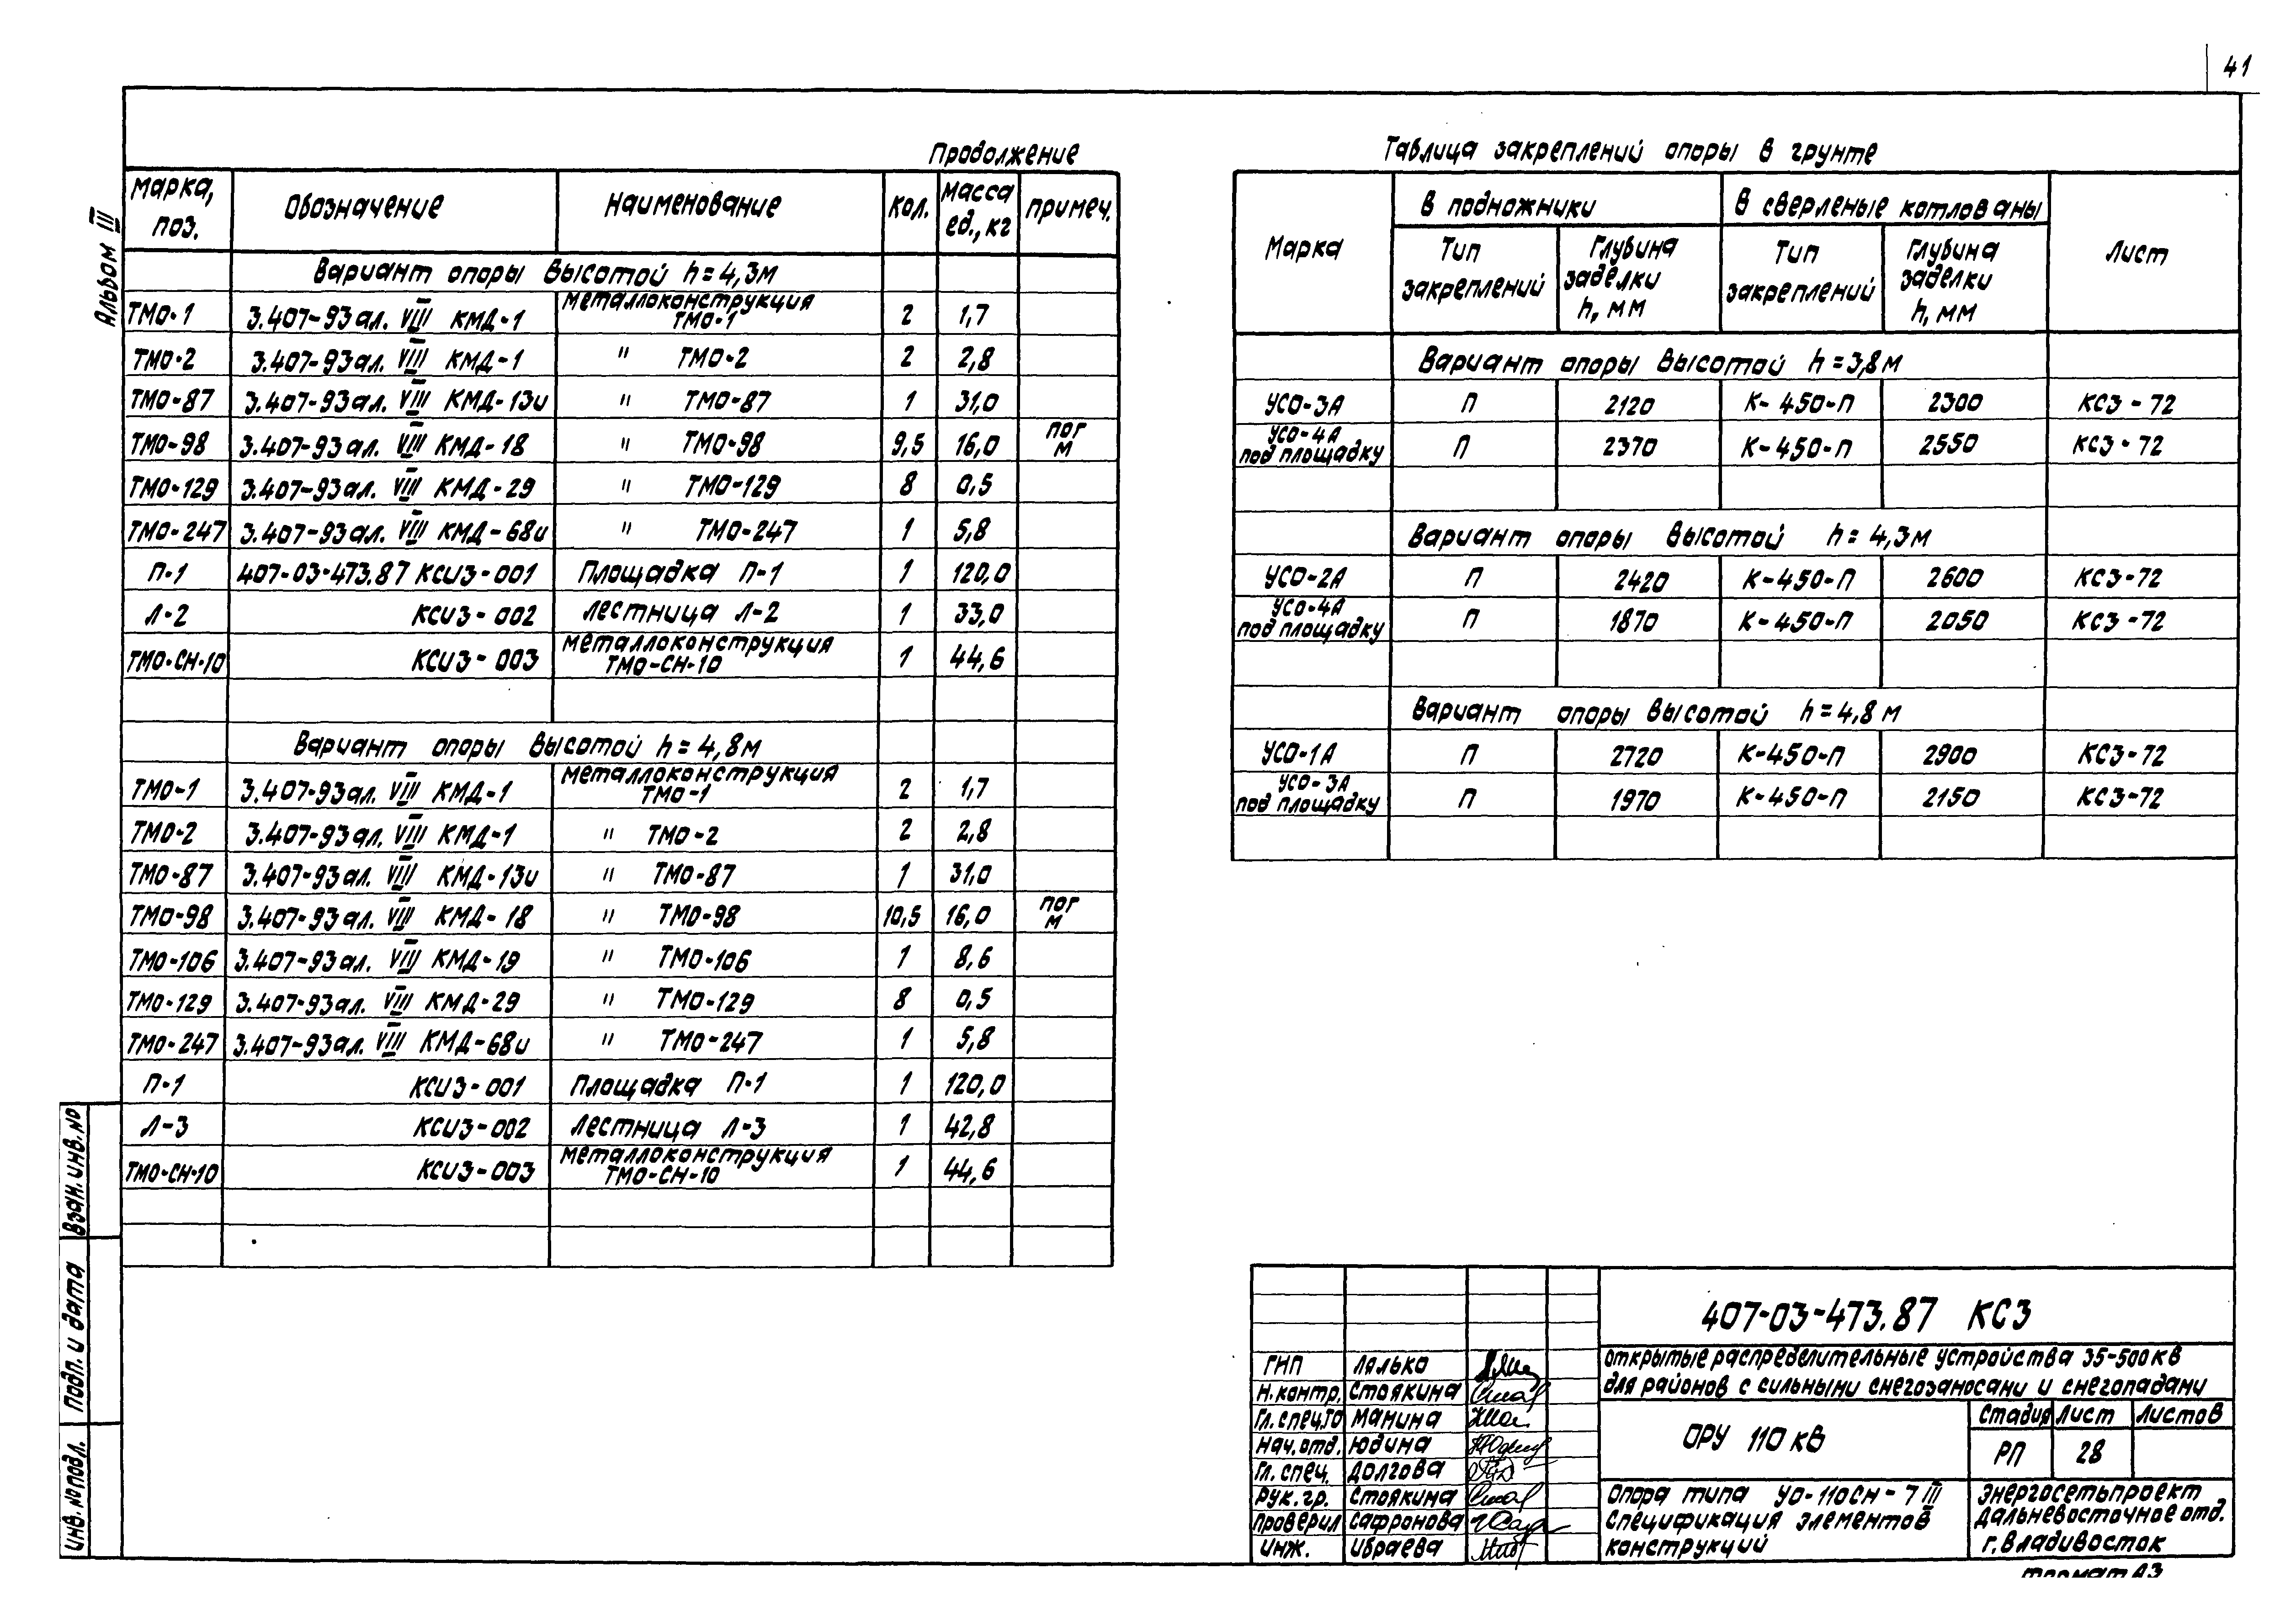 41
Альбом III
Продолжение
Марка, поз. Обозначение Наименование Кол. Масса ед., кг Примеч.
Вариант опоры высотой h = 4,3м
ТМО-1 3.407-93 ал. VIII КМД-1 Металлоконструкция ТМО-1 2 1,7
ТМО-2 3.407-93 ал. VIII КМД-1 " ТМО-2 2 2,8
ТМО-87 3.407-93 ал. VIII КМД-13и " ТМО-87 1 31,0
ТМО-98 3.407-93 ал. VIII КМД-18 " ТМО-98 9,5 16,0 пог м
ТМО-129 3.407-93 ал. VIII КМД-29 " ТМО-129 8 0,5
ТМО-247 3.407-93 ал. VIII КМД-68и " ТМО-247 1 5,8
П-1 407-03-473.87 КСИЗ-001 Площадка П-1 1 120,0
Л-2 КСИЗ-002 Лестница Л-2 1 33,0
ТМО-СН-10 КСИЗ-003 Металлоконструкция ТМО-СН-10 1 44,6
Вариант опоры высотой h = 4,8м
ТМО-1 3.407-93 ал. VIII КМД-1 Металлоконструкция ТМО-1 2 1,7
ТМО-2 3.407-93 ал. VIII КМД-1 " ТМО-2 2 2,8
ТМО-87 3.407-93 ал. VIII КМД-13и " ТМО-87 1 31,0
ТМО-98 3.407-93 ал. VIII КМД-18 " ТМО-98 10,5 16,0 пог м
ТМО-106 3.407-93 ал. VIII КМД-19 " ТМО-106 1 8,6
ТМО-129 3.407-93 ал. VIII КМД-29 " ТМО-129 8 0,5
ТМО-247 3.407-93 ал. VIII КМД-68и " ТМО-247 1 5,8
П-1 КСИЗ-001 Площадка П-1 1 120,0
Л-3 КСИЗ-002 Лестница Л-3 1 42,8
ТМО-СН-10 КСИЗ-003 Металлоконструкция ТМО-СН-10 1 44,6
Таблица закреплений опоры в грунте
Марка В подножники В сверленые котлованы Лист
Тип закреплений Глубина заделки h, мм Тип закреплений Глубина заделки h, мм
Вариант опоры высотой h = 3,8м
УСО-3А П 2120 К-450-П 2300 КСЗ-72
УСО-4А под площадку П 2370 К-450-П 2550 КСЗ-72
Вариант опоры высотой h = 4,3м
УСО-2А П 2420 К-450-П 2600 КСЗ-72
УСО-4А под площадку П 1870 К-450-П 2050 КСЗ-72
Вариант опоры высотой h = 4,8м
УСО-1А П 2720 К-450-П 2900 КСЗ-72
УСО-3А под площадку П 1970 К-450-П 2150 КСЗ-72
Взан. инв. №
Подп. и дата
Инв. № подл.
407-03-473.87 КСЗ
Открытые распределительные устройства 35-500кВ
для районов с сильными снегозаносами и снегопадами
ГИП Лялько
Н.контр. Стоякина
Гл.спец.ТО Манина
Нач.отд. Юдина
Гл. спец. Долгова
Рук. гр. Стоякина
Проверил Сафронова
Инж. Ибраева
ОРУ 110кВ
Стадия Лист Листов
РП 28
Опора типа УО-110СН-7III
Спецификация элементов
конструкций
Энергосетьпроект
Дальневосточное отд.
г. Владивосток
Формат А3